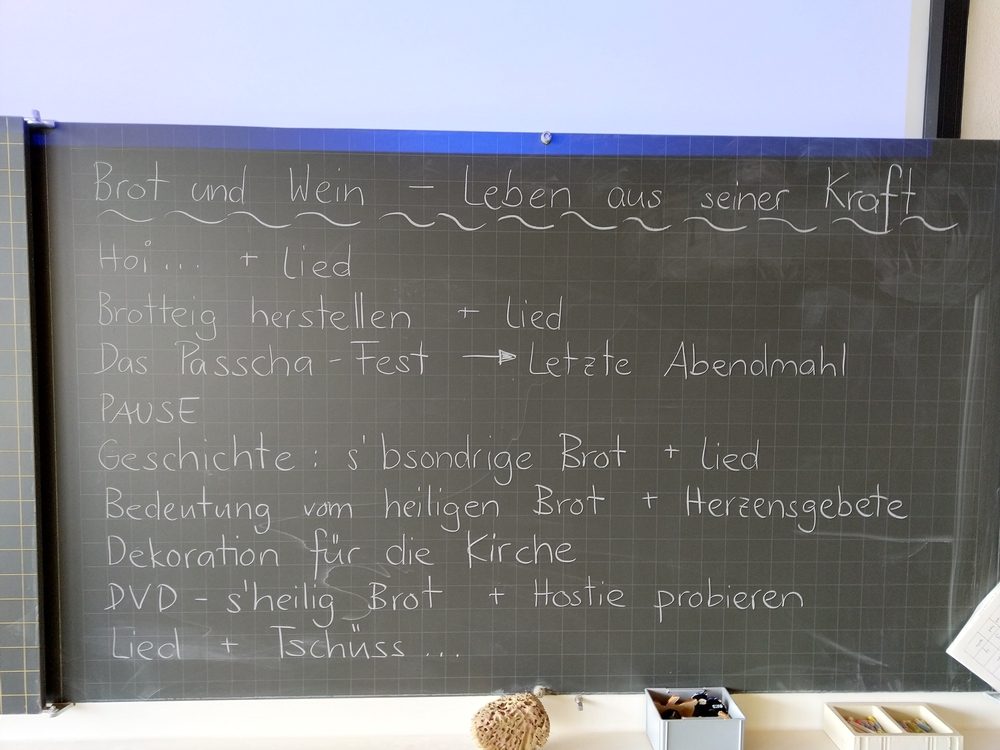 Brot und Wein – Leben aus seiner Kraft
Hoi... + Lied
Brotteig herstellen + Lied
Das Passcha-Fest → Letzte Abendmahl
PAUSE
Geschichte: s'bsondrige Brot + Lied
Bedeutung vom heiligen Brot + Herzensgebete
Dekoration für die Kirche
DVD - s'heilig Brot + Hostie probieren
Lied + Tschüss...